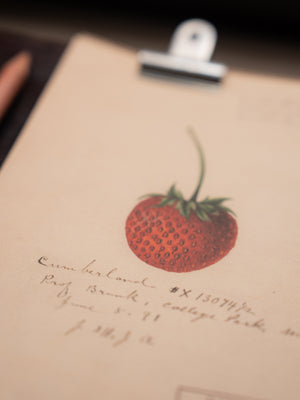 Cumberland #X 13074½
Prof Brunk, College Park, M
June 5. 91